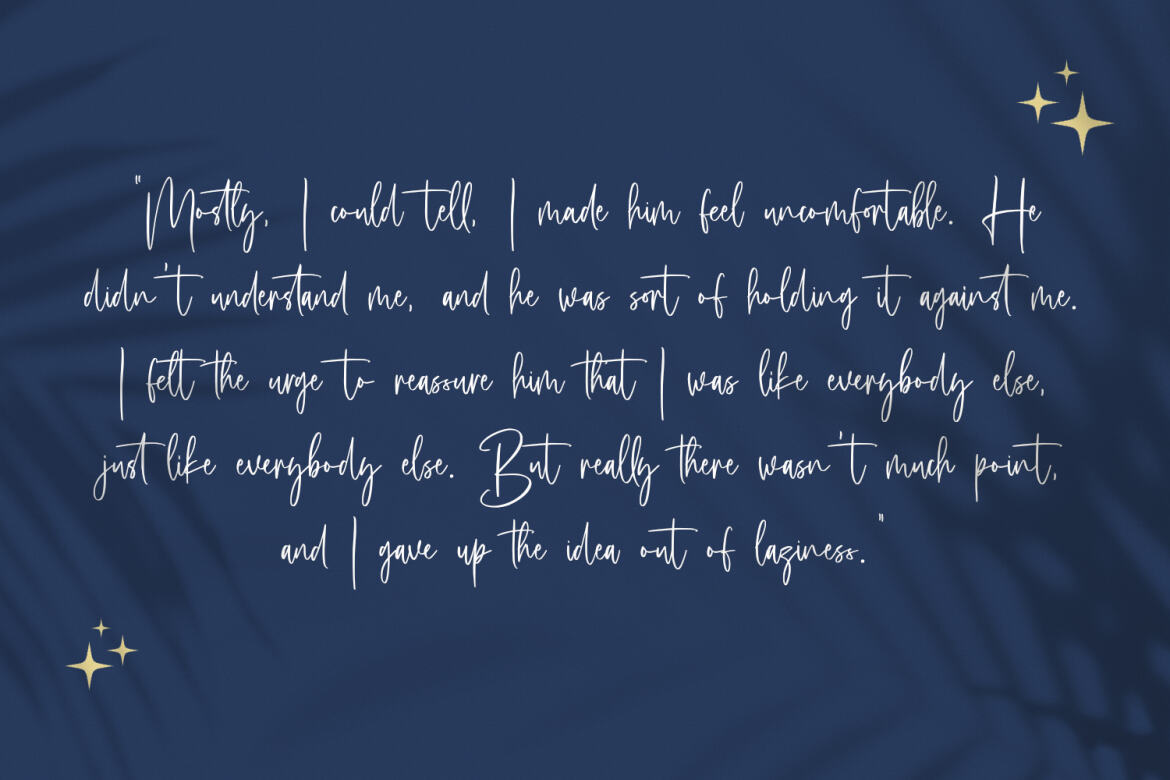 "Mostly, I could tell, I made him feel uncomfortable. He
didn't understand me, and he was sort of holding it against me.
I felt the urge to reassure him that I was like everybody else,
just like everybody else. But really there wasn't much point,
and I gave up the idea out of laziness."